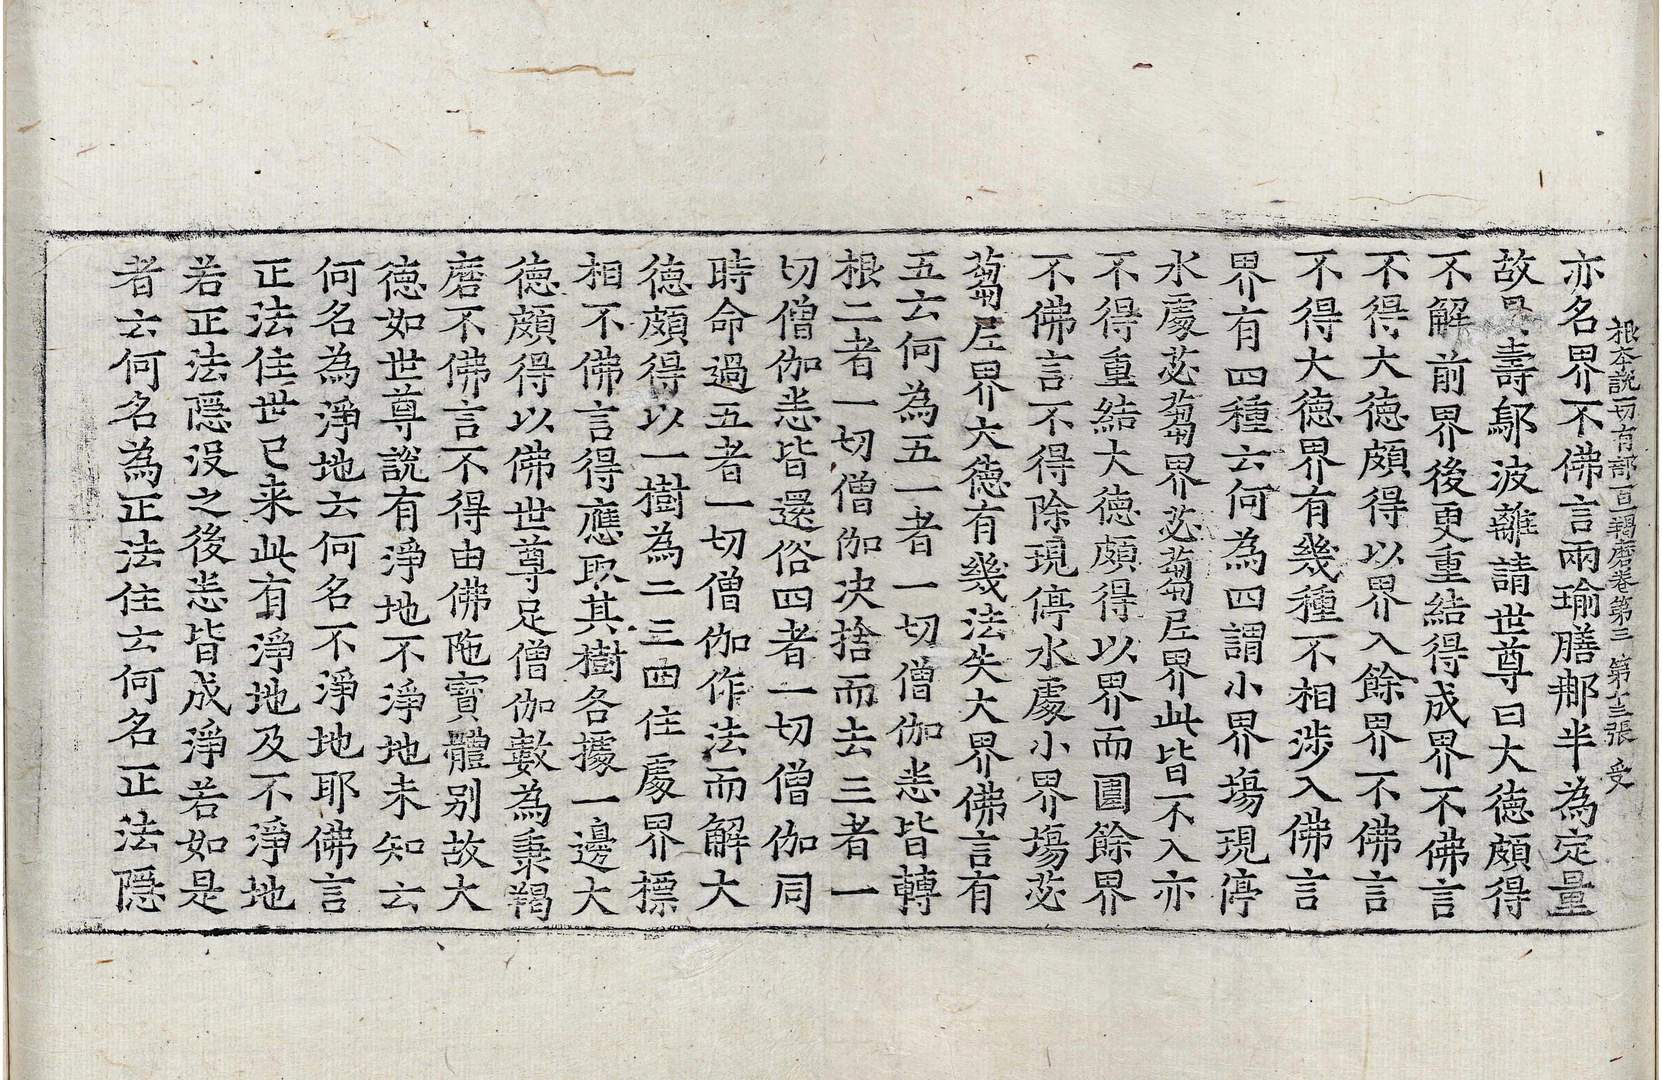 根本說一切有部百一羯磨卷第三 第十三張 受
亦名界不佛言兩瑜膳那半為定量
故具壽鄔波離請世尊曰大德頗得
不解前界後更重結得成界不佛言
不得大德頗得以界入餘界不佛言
不得大德界有幾種不相涉入佛言
界有四種云何為四謂小界場現停
水處苾蒭界苾蒭尼界此皆不入亦
不得重結大德頗得以界而圍餘界
不佛言不得除現停水處小界場苾
蒭尼界大德有幾法失大界佛言有
五云何為五一者一切僧伽悉皆轉
根二者一切僧伽决捨而去三者一
切僧伽悉皆還俗四者一切僧伽同
時命過五者一切僧伽作法而解大
德頗得以一樹為二三四住處界標
相不佛言得應取其樹各據一邊大
德頗得以佛世尊足僧伽數為秉羯
磨不佛言不得由佛陁寶體別故大
德如世尊說有淨地不淨地未知云
何名為淨地云何名不淨地耶佛言
正法住世已来此有淨地及不淨地
若正法隱没之後悉皆成淨若如是
者云何名為正法住云何名正法隱